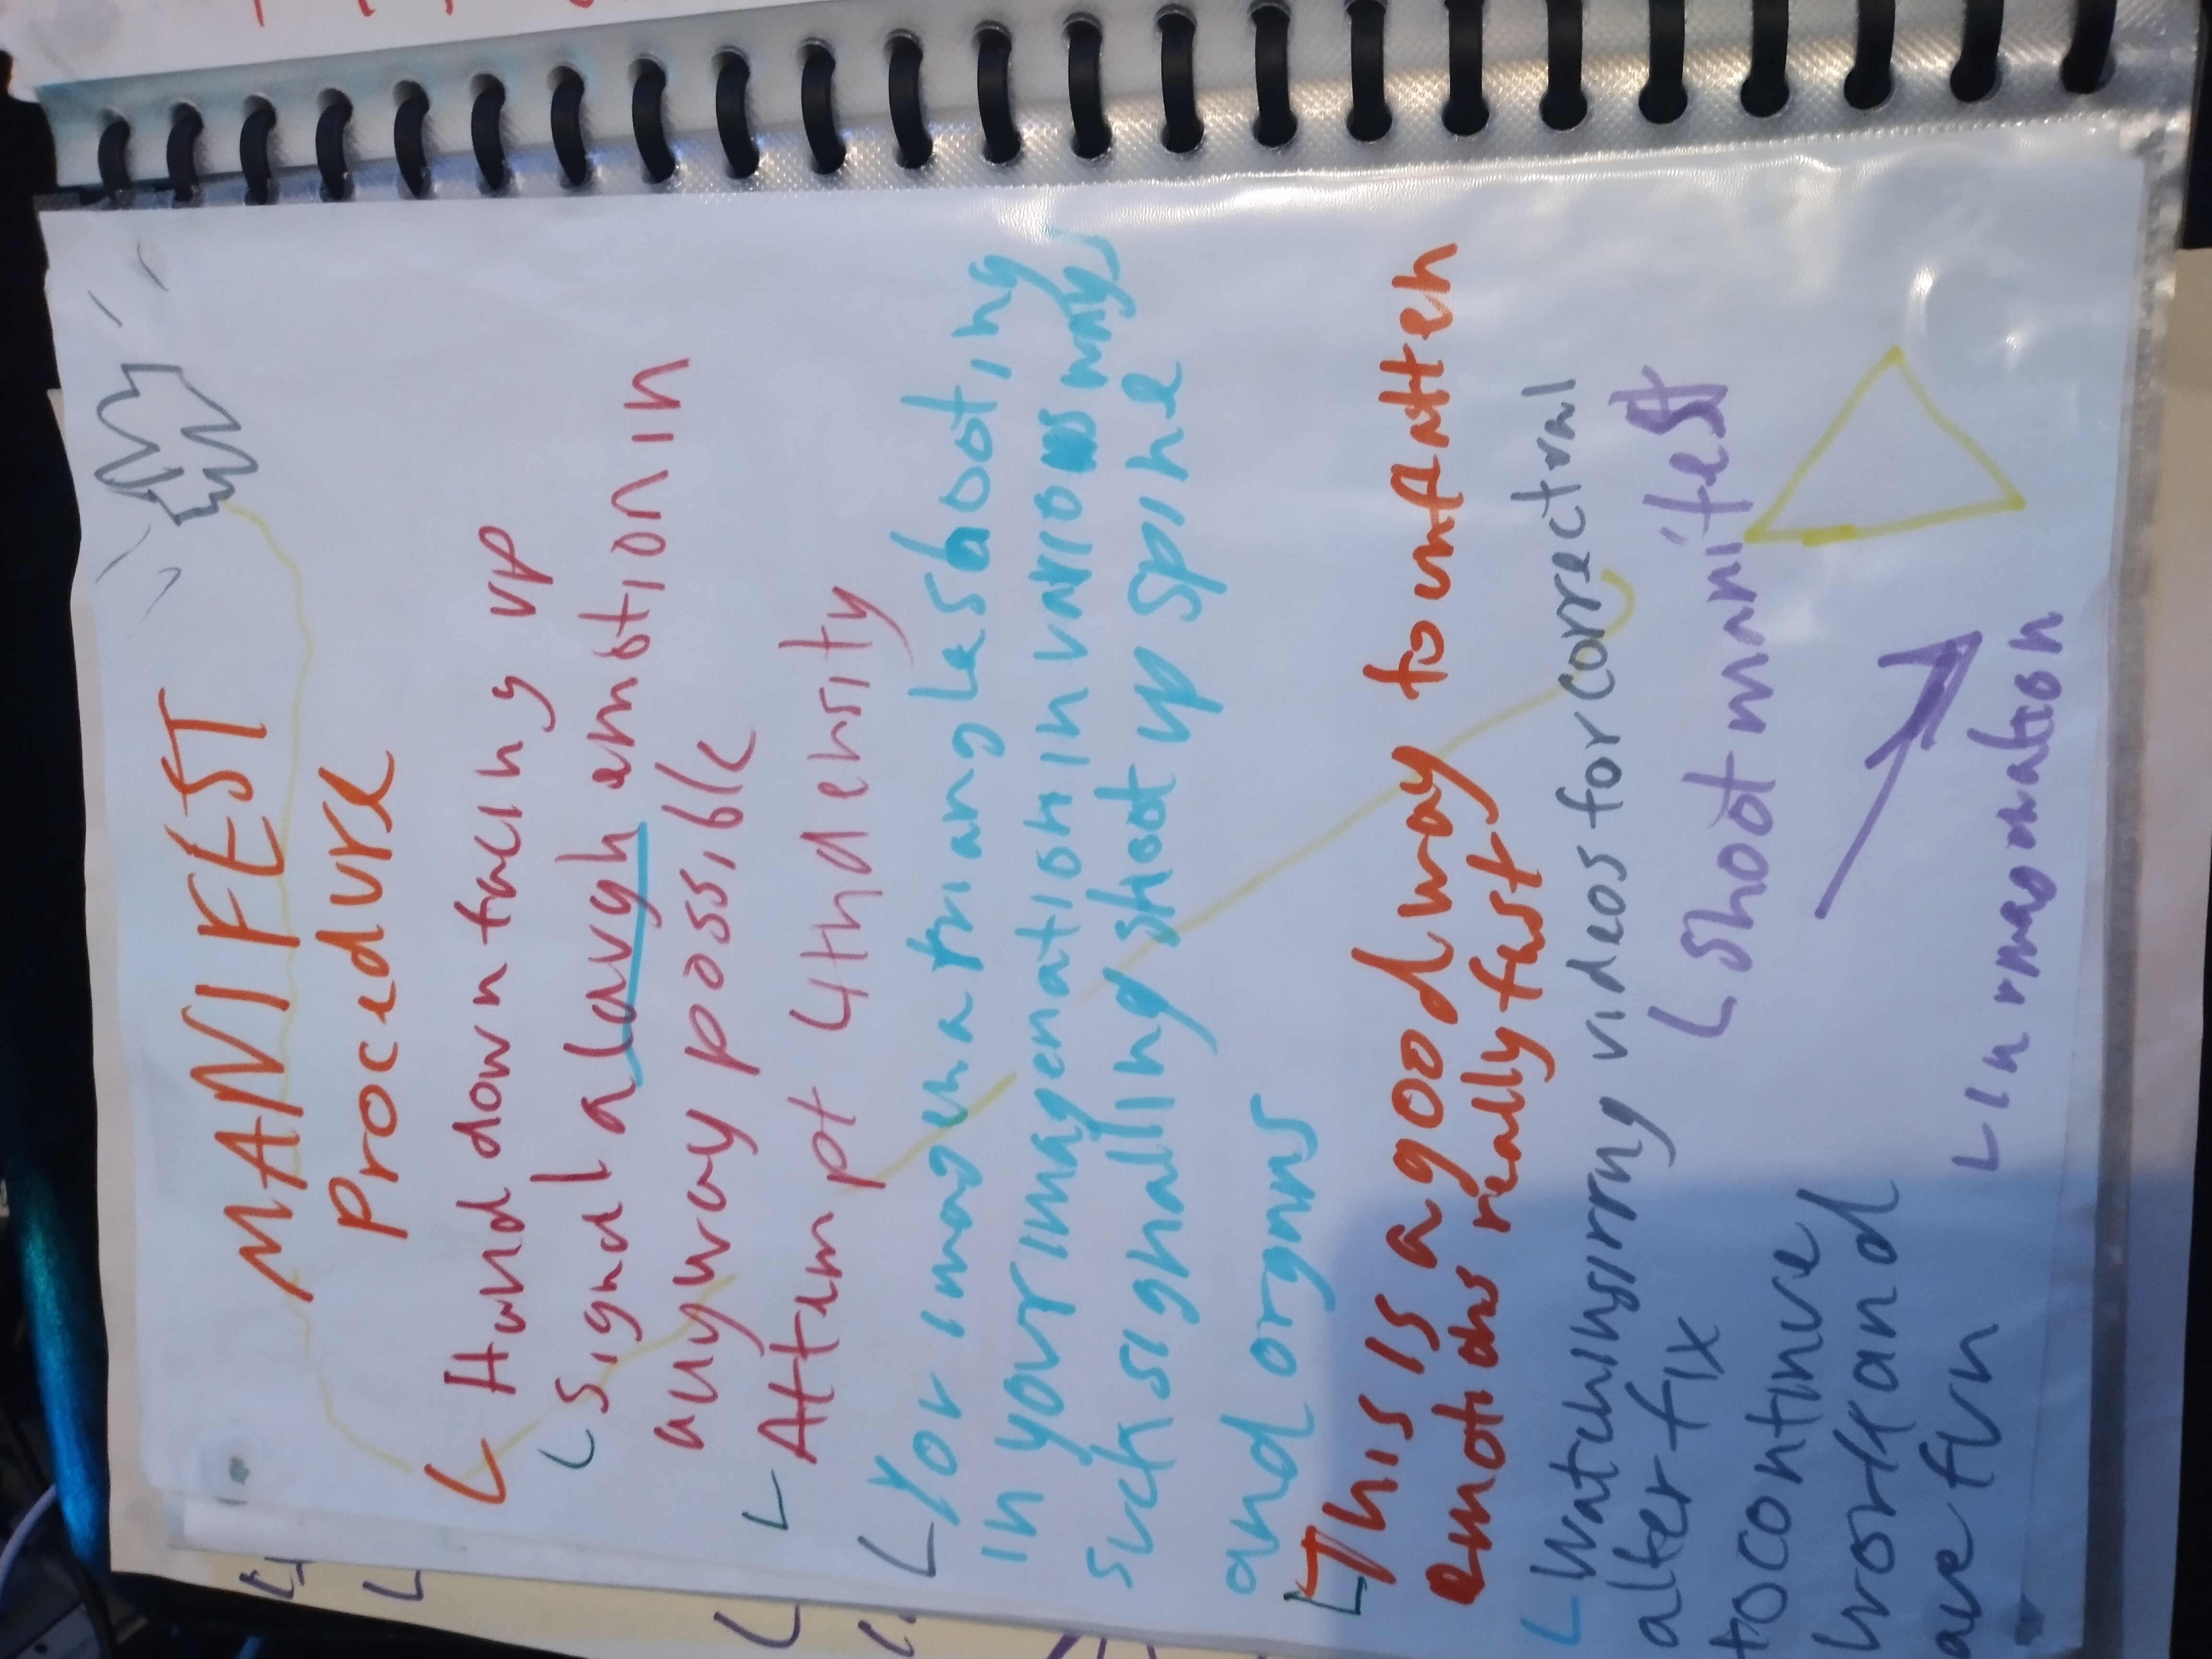 MANIFEST
Procedure
Hand down facing up
signal a laugh emotion in
anyway possible
Attempt 4th density
Yor imagen a triangle shooting
in your imagenation in various ways
such signalling shoot up spine
and organs
This is a good way to match
emotions really fast
Watch videos for correctual
alter fix
to continue
work and
ave fun
shoot manifest
in imagenation